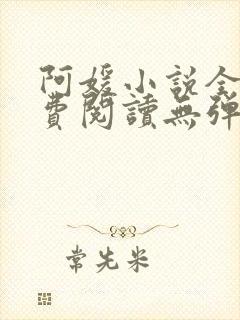 阿媛小說全
費閱讀無彈
常先米